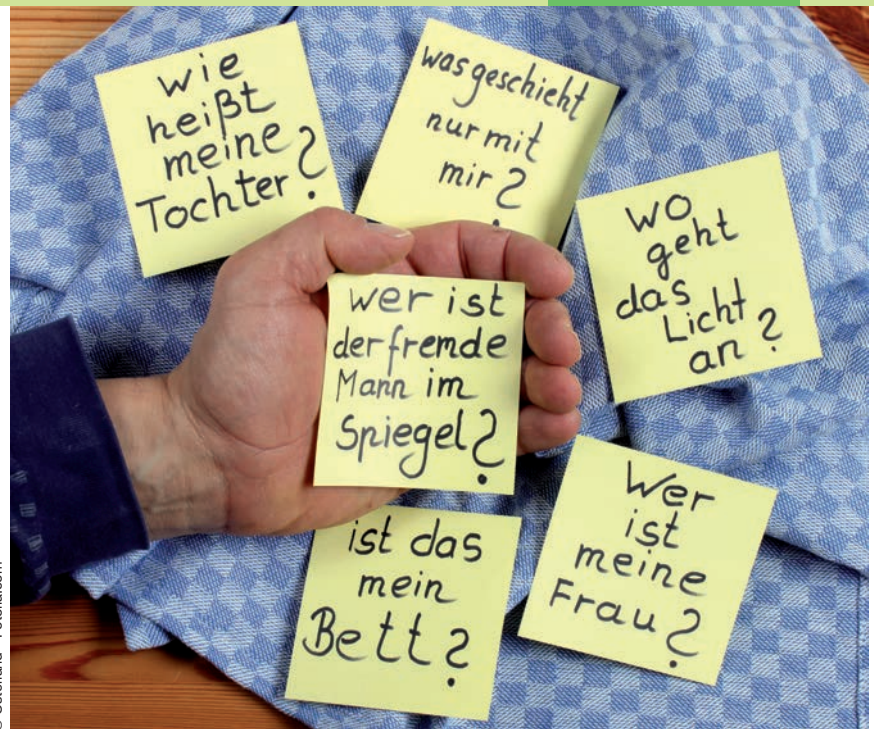 wie
heißt
meine
Tochter?
was geschieht
nur mit
mir?
wo
geht
das
Licht
an?
wer ist
der fremde
Mann im
Spiegel?
ist das
mein
Bett?
Wer
ist
meine
Frau?